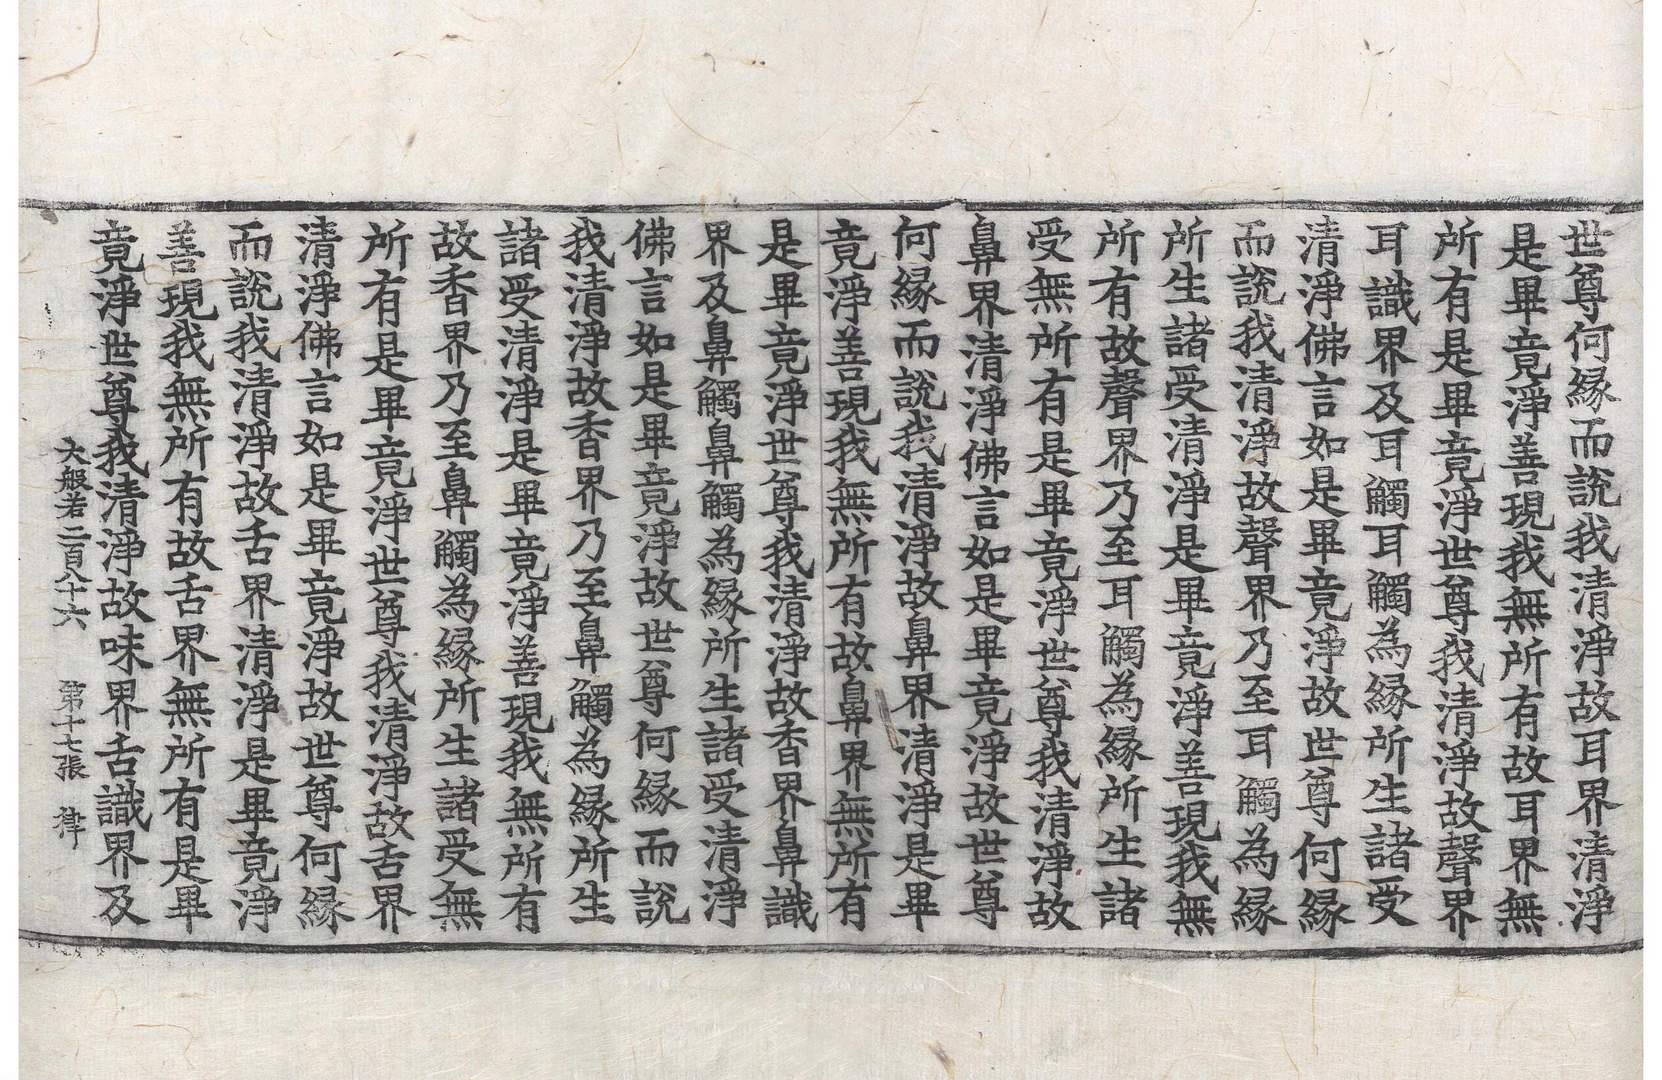 世尊何緣而說我清淨故耳界清淨
是畢竟淨善現我無所有故耳界無
所有是畢竟淨世尊我清淨故聲界
耳識界及耳觸耳觸為緣所生諸受
清淨佛言如是畢竟淨故世尊何緣
而說我清淨故聲界乃至耳觸為緣
所生諸受清淨是畢竟淨善現我無
所有故聲界乃至耳觸為緣所生諸
受無所有是畢竟淨世尊我清淨故
鼻界清淨佛言如是畢竟淨故世尊
何緣而說我清淨故鼻界清淨是畢
竟淨善現我無所有故鼻界無所有
是畢竟淨世尊我清淨故香界鼻識
界及鼻觸鼻觸為緣所生諸受清淨
佛言如是畢竟淨故世尊何緣而說
我清淨故香界乃至鼻觸為緣所生
諸受清淨是畢竟淨善現我無所有
故香界乃至鼻觸為緣所生諸受無
所有是畢竟淨世尊我清淨故舌界
清淨佛言如是畢竟淨故世尊何緣
而說我清淨故舌界清淨是畢竟淨
善現我無所有故舌界無所有是畢
竟淨世尊我清淨故味界舌識界及
大般若二百八十六 第十七張 律